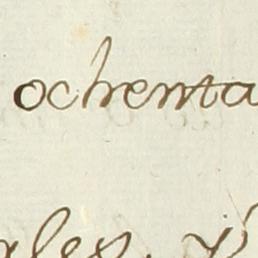 ochenta
ales. y